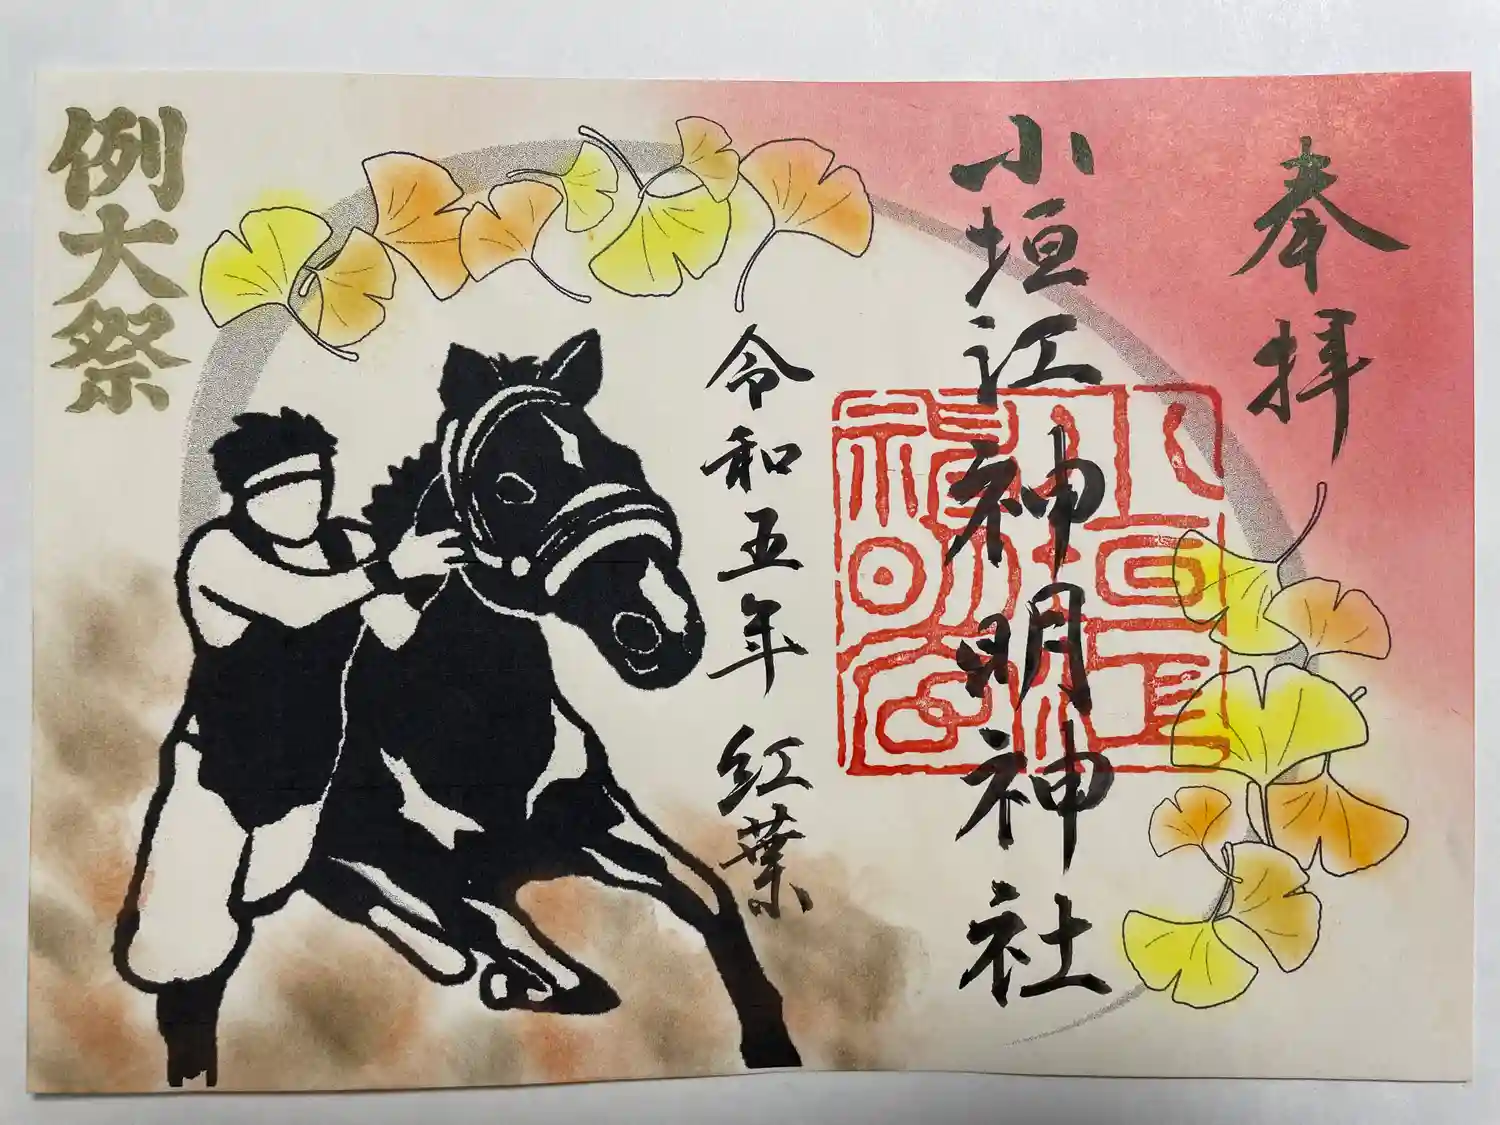 奉拝
小垣江神明神社
令和五年 紅葉
例大祭